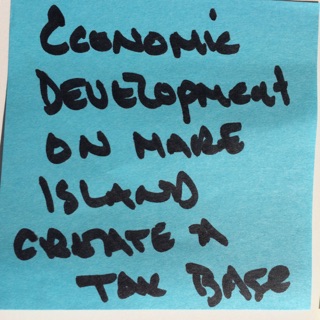 Economic
Development
on Mare
Island
create a
tax Base